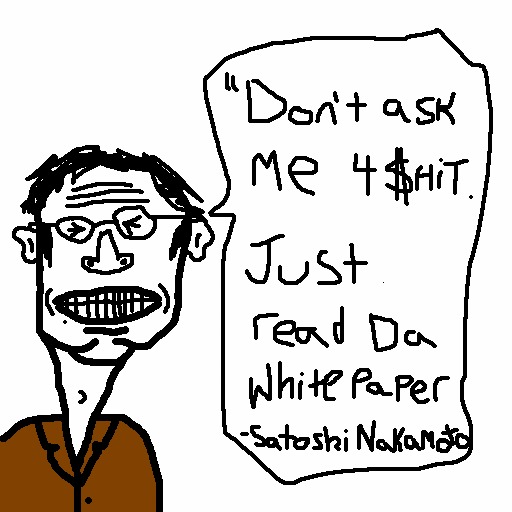 "Don't ask
me 4 $HiT.
Just
read Da
white Paper
-Satoshi Nakamoto